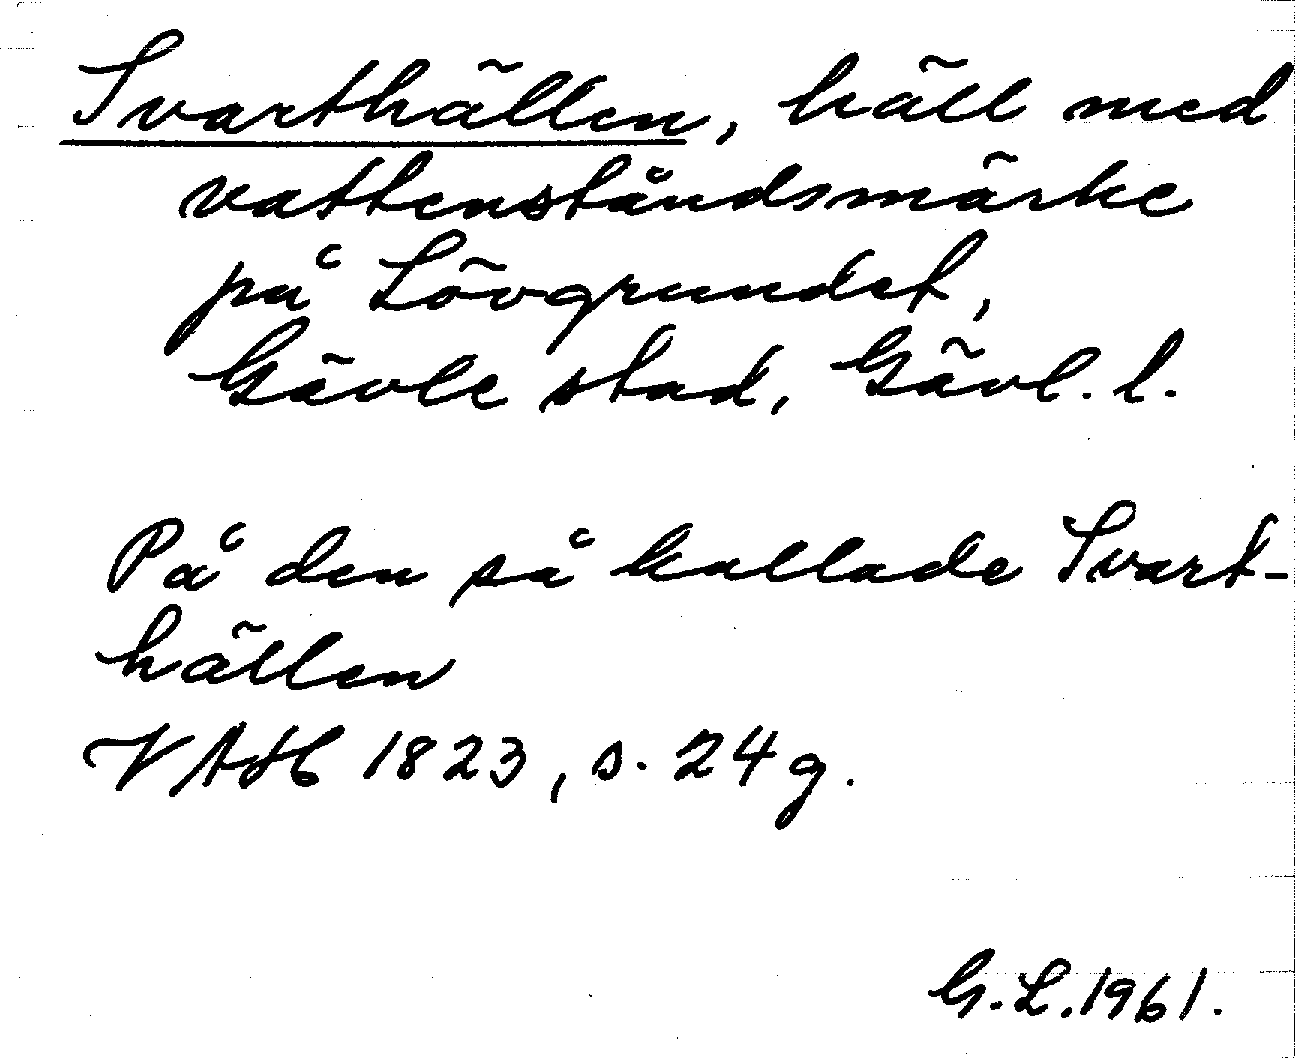 Svarthällen, häll med
vattenståndsmärke
på Lövgrundet,
Gävle stad, Gävl. l.
På den så kallade Svart-
hällen
VAH 1823, s. 249.
G.L. 1961.